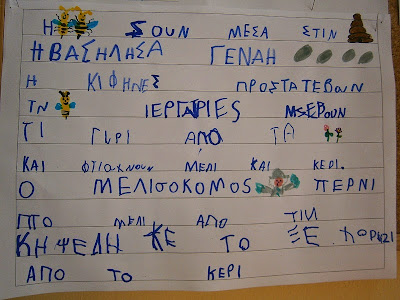 Η ΖΟΥΝ ΜΕΣΑ ΣΤΙΝ
Η ΒΑΣΗΛΗΣΑ ΓΕΝΑΗ
Η ΚΙΦΗΝΕΣ ΠΡΟΣΤΑΤΕΒΟΥΝ
ΤΝ ΙΕΡΓΑΡΙΕS ΜΑΖΕΒΟΥΝ
ΤΙ ΓΙΡΙ ΑΠΟ ΤΑ
ΚΑΙ ΦΤΙΑΧΝΟΥΝ ΜΕΛΙ ΚΑΙ ΚΕΡΙ.
Ο ΜΕΛΙSΟΚΟΜΟS ΠΕΡΝΙ
ΤΟ ΜΕΛΙ ΑΠΟ ΤΙΝ
ΚΗΨΕΛΗ ΚΕ ΤΟ ΞΕ
ΑΠΟ ΤΟ ΚΕΡΙ